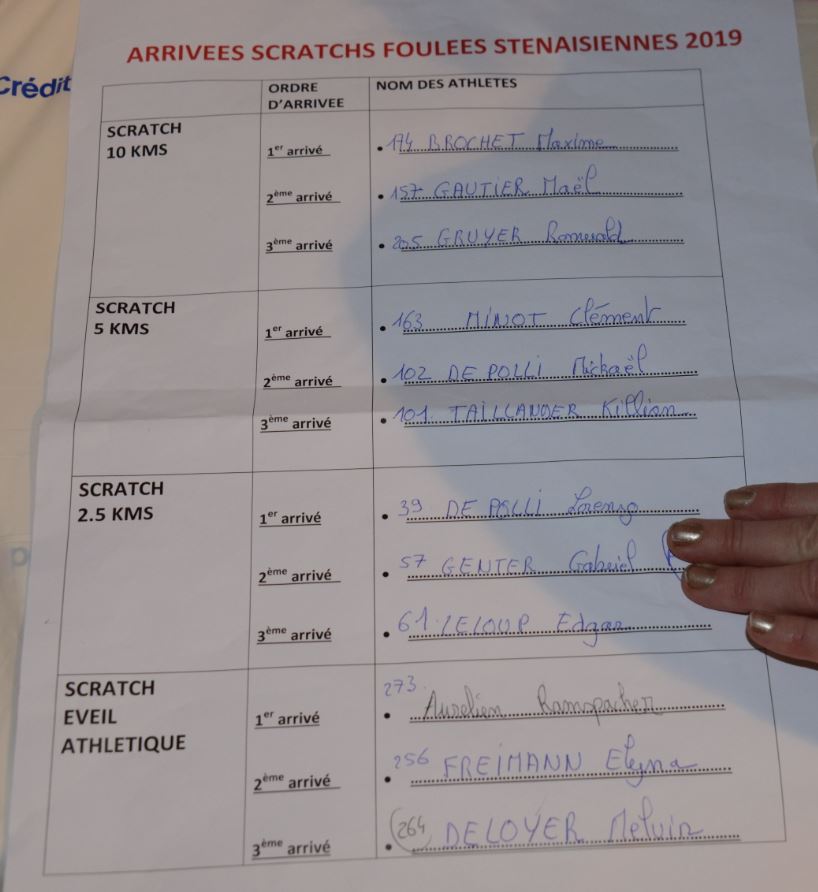 Crédit
ARRIVEES SCRATCHS FOULEES STENAISIENNES 2019
ORDRE D'ARRIVEE
NOM DES ATHLETES
SCRATCH 10 KMS
1er arrivé • 174 BROCHET Maxime
2ème arrivé • 157 GAUTIER Maël
3ème arrivé • 205 GRUYER Romuald
SCRATCH 5 KMS
1er arrivé • 163 MINOT Clément
2ème arrivé • 102 DE POLLI Mickaël
3ème arrivé • 101 TAILLANDER Killian
SCRATCH 2.5 KMS
1er arrivé • 39 DE POLLI Lorenzo
2ème arrivé • 57 GENTER Gabriel
3ème arrivé • 61 LELOUP Edgar
SCRATCH EVEIL ATHLETIQUE
1er arrivé • 273 Aurelien Ramspacher
2ème arrivé • 256 FREIMANN Elyna
3ème arrivé • 264 DELOYER Melvin